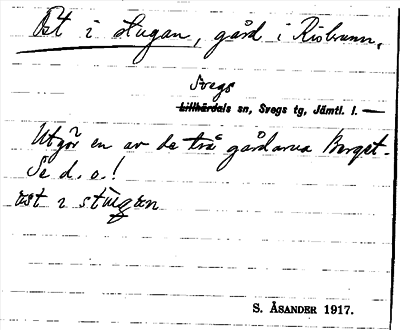 Öst i stugan, gård i Risbrunn.
Svegs
Lillhärdals sn, Svegs tg, Jämtl. l. —
Utgör en av de två gårdarna Berget.
Se d. o.!
öst i stugan
S. ÅSANDER 1917.